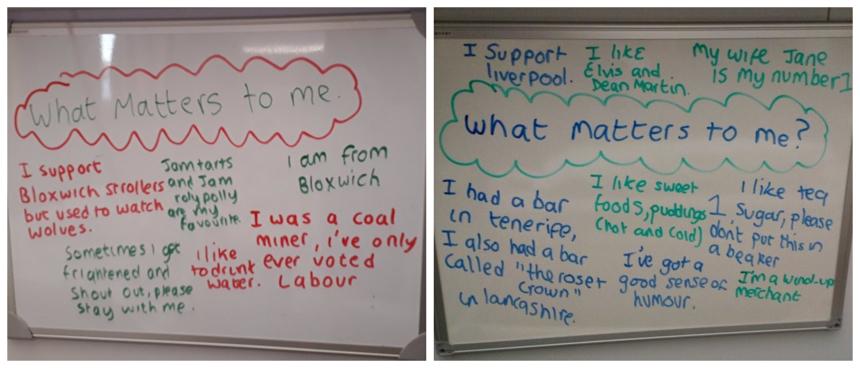 What Matters to me.
I support
Bloxwich strollers
but used to watch
wolves.
Jamtarts
and Jam
rolypolly
are my
favourite.
I am from
Bloxwich
Sometimes I get
frightened and
shout out, please
stay with me.
I like
to drink
water.
I was a coal
miner, i've only
ever voted
Labour
I Support
liverpool.
I like
Elvis and
Dean Martin.
My wife Jane
is my number 1
what matters to me?
I had a bar
in tenerife,
I also had a bar
called "the roser
crown"
in lancashire.
I like sweet
foods, puddings
(hot and cold)
I've got a
good sense of
humour.
I like tea
1 sugar, please
don't put this in
a beaker
I'm a wind-up
merchant